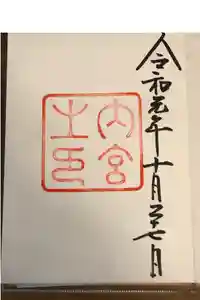 令和元年十月二十七日
内宮
之印